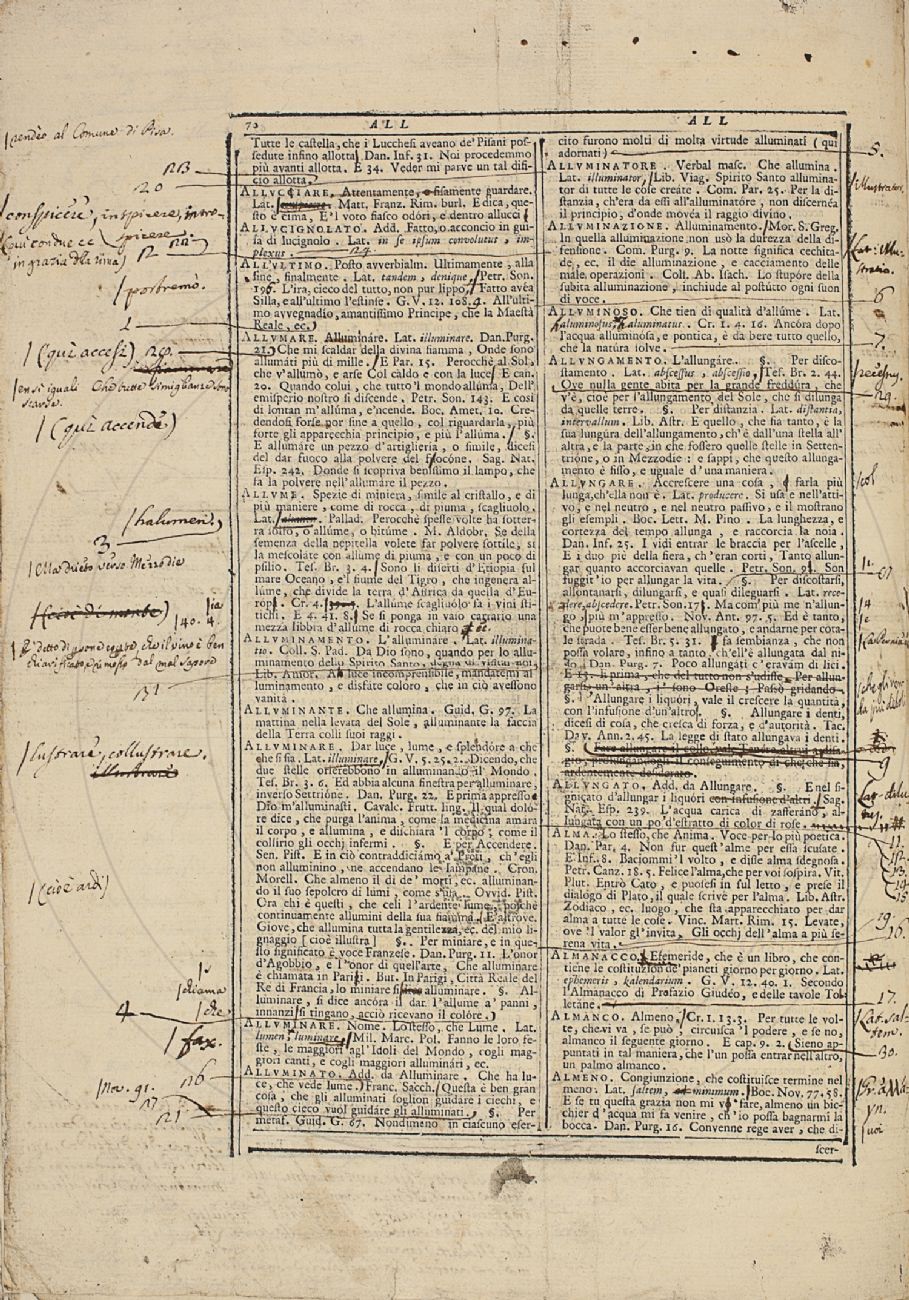 72 ALL ALL
Tutte le castella, che i Lucchesi aveano de' Pisani pos-
sedute infino allotta. Dan. Inf. 31. Noi procedemmo
più avanti allotta. E 34. Veder mi parve un tal difi-
cio allotta.
ALLUCCIARE. Attentamente, fisamente guardare.
Lat. Matt. Franz. Rim. burl. E dica, que-
sto è cima, E 'l voto fiasco odóri, e dentro allucci
ALLUCIGNOLATO. Add. Fatto, o acconcio in gui-
sa di lucignolo. Lat. in se ipsum convolutus, im-
plexus.
ALL'ULTIMO. Posto avverbialm. Ultimamente, alla
fine, finalmente. Lat. tandem, denique. Petr. Son.
196. L'ira cieco del tutto, non pur lippo, Fatto avéa
Silla, e all'ultimo l'estinse. G. V. 12. 108. 4. All'ulti-
mo avvegnadio, amantissimo Principe, che la Maestà
Reale, ec.
ALLUMARE. Alluminàre. Lat. illuminare. Dan. Purg.
21. Che mi scaldar della divina fiamma, Onde sono
allumati più di mille. E Par. 15. Perocchè al Sol,
che v'allumò, e arse Col caldo e con la luce. E can.
20. Quando colui, che tutto 'l mondo allúma, Dell'
emisperio nostro sì discende. Petr. Son. 143. E così
di lontan m'allúma, e 'ncende. Boc. Amet. 10. Cre-
dendosi forse por fine a quello, col riguardarla, più
forte gli apparecchia principio, e più l'allúma. §.
E allumáre un pezzo d'artiglieria, o simile, dicesi
del dar fuoco alla polvere del focóne. Sag. Nat.
Esp. 242. Donde si scopriva benissimo il lampo, che
fa la polvere nell'allumáre il pezzo.
ALLUME. Spezie di miniera, simile al cristallo, e di
più maniere, come di rocca, di piuma, scagliuolo.
Lat. Pallad. Perocchè spesse volte ha sotter-
ra solfo, o allúme, o bitúme. M. Aldobr. Se della
semenza della nepitella volete far polvere sottile, si
la mescolate con allúme di piuma, e con un poco di
psilio. Tes. Br. 3. 4. Sono li diserti d'Etiopia sul
mare Oceano, e 'l fiume del Tigro, che ingenera al-
lúme, che divide la terra d'Affrica da quella d'Eu-
rop. Cr. 4. L'allúme scagliuolo fa i vini sti-
tichi. E 4. 41. 8. Se si ponga in vaso carrario una
mezza libbra d'allúme di rocca chiaro, ec.
ALLUMINAMENTO. L'alluminàre. Lat. illumina-
tio. Coll. S. Pad. Da Dio sono, quando per lo allu-
minamento dello Spirito Santo, degna di visitar noi.
Lib. Amor. A luce incomprensibile, mandatemi al-
luminamento, e disfate coloro, che in ciò avessono
vanità.
ALLUMINANTE. Che allumina. Guid. G. 97. La
mattina nella levata del Sole, alluminante la faccia
della Terra colli suoi raggi.
ALLUMINARE. Dar luce, lume, e splendóre a che
che si sia. Lat. illuminare. G. V. 5. 25. 2. Dicendo, che
due stelle offerebbono in alluminando il Mondo.
Tes. Br. 3. 6. Ed abbia alcuna finestra per alluminàre,
inverso Settrióne. Dan. Purg. 22. E prima appresso
Dio m'alluminasti. Cavalc. Frutt. ling. Il qual dolo-
re dice, che purga l'anima, come la medicina amára
il corpo, e allumina, e dischiara 'l corpo; come il
collirio gli occhj infermi. §. E per Accendere.
Sen. Pist. E in ciò contraddiciámo a' Preti, ch'egli
non alluminino, ne accendano le lampane. Cron.
Morell. Che almeno il dì de' morti, ec. alluminan-
do il suo sepolcro di lumi, come s'usa. Ovvid. Pist.
Ora chi è questi, che celi l'ardente lume, poichè
continuamente allumini della sua fiamma. E altrove.
Giove, che allumina tutta la gentilezza, ec. del mio li-
gnaggio [ cioè illustra ] §. Per miniare, e in que-
sto significato è voce Franzese. Dan. Purg. 11. L'onor
d'Agobbio, e l'onor di quell'arte, Che alluminare
è chiamata in Parigi. But. In Parigi, Città Reale del
Re di Francia, lo miniare alluminare. §. Al-
luminare, si dice ancóra il dar l'allume a' panni,
innanzi si tingano, acciò ricevano il colóre.
ALLUMINARE. Nome. Lo stesso, che Lume. Lat.
lumen, luminare. Mil. Marc. Pol. Fanno le loro fe-
ste, le maggiori agl'Idoli del Mondo, cogli mag-
giori canti, e cogli maggiori allumináti, ec.
ALLUMINATO. Add. da Alluminare. Che ha lu-
ce, che vede lume. Franc. Sacch. Questa è ben gran
cosa, che gli alluminati soglion guidáre i ciechi, e
questo cieco vuol guidáre gli alluminati. §. Per
metaf. Guid. G. 67. Nondimeno in ciascuno eser-
cito furono molti di molta virtude alluminati ( qui
adornati )
ALLUMINATORE. Verbal masc. Che allumina.
Lat. illuminator. Lib. Viag. Spirito Santo allumina-
tor di tutte le cose create. Com. Par. 25. Per la di-
stanzia, ch'era da essi all'alluminatóre, non discernéa
il principio, d'onde movéa il raggio divino.
ALLUMINAZIONE. Alluminamento. Mor. S. Greg.
In quella alluminazione, non usò la durezza della di-
fensione. Com. Purg. 9. La notte significa cechita-
de, ec. il die alluminazione, e cacciamento delle
male operazioni. Coll. Ab. Isach. Lo stupóre della
subita alluminazione, inchiude al postutto ogni suon
di voce.
ALLUMINOSO. Che tien di qualità d'allúme. Lat.
aluminosus, aluminatus. Cr. 1. 4. 16. Ancóra dopo
l'acqua alluminósa, e pontica, è da bere tutto quello,
che la natúra solve.
ALLUNGAMENTO. L'allungáre. §. Per disco-
stamento. Lat. abscessus, abscessio. Tes. Br. 2. 44.
Ove nulla gente abita per la grande freddúra, che
v'è, cioè per l'allungamento del Sole, che si dilunga
da quelle terre. §. Per distanzia. Lat. distantia,
intervallum. Lib. Astr. E quello, che sia tanto, è la
sua lungúra dell'allungamento, ch'è dall'una stella all'
altra, e la parte, in che fossero quelle stelle in Setten-
trione, o in Mezzodie: e sappi, che questo allunga-
mento è fisso, e uguale d'una maniera.
ALLUNGARE. Accrescere una cosa, farla più
lunga, ch'ella non è. Lat. producere. Si usa e nell'atti-
vo, e nel neutro, e nel neutro passivo, e il mostrano
gli esempli. Boc. Lett. M. Pino. La lunghezza, e
cortezza del tempo allunga, e raccorcia la noia.
Dan. Inf. 25. I vidi entrar le braccia per l'ascelle,
E i duo piè della fiera, ch'eran corti. Tanto allun-
gar quanto accorciavan quelle. Petr. Son. 9. Son
fuggit'io per allungar la vita. §. Per discostarsi,
allontanarsi, dilungarsi, e quasi dileguarsi. Lat. rece-
dere, abscedere. Petr. Son. 17. Ma com' più me n'allun-
go, più m'appresso. Nov. Ant. 97. 5. Ed è tanto,
che puote bene esser bene allungato, e andarne per cóta-
le strada. Tes. Br. 5. 31. fa sembianza, che non
possa volare, infino a tanto ch'ell'è allungata dal ni-
do. Dan. Purg. 7. Poco allungati c'eravám di lici.
E 13. E prima, che del tutto non s'udisse, Per allun-
garsi, un'altra, i' sono Oreste; Passò gridando
§. Allungare i liquóri, vale il crescere la quantità,
con l'infusione d'un'altro. §. Allungare i denti,
dicesi di cosa, che cresca di forza, e d'autorità. Tac.
Dav. Ann. 2. 45. La legge di stato allungava i denti.
ardentemente desiderato.
ALLUNGATO. Add. da Allungare. §. E nel si-
gnificato d'allungar i liquóri con infusione d'altri. Sag.
Nat. Esp. 239. L'acqua carica di zafferáno, al-
lungata con un po' d'estratto di color di rose.
ALMA. Lo stesso, che Anima. Voce per lo più poetica.
Dan. Par. 4. Non fur quest'alme per essa scusate.
E Inf. 8. Baciommi 'l volto, e disse alma sdegnosa.
Petr. Canz. 18. 5. Felice l'alma, che per voi sospira. Vit.
Plut. Entrò Cato, e puosesi in sul letto, e prese il
dialógo di Plato, il quale scrive per l'alma. Lib. Astr.
Zodiaco, ec. luogo, che sta apparecchiato per dar
alma a tutte le cose. Vinc. Mart. Rim. 15. Levate,
ove 'l valor gl'invita, Gli occhj dell'alma a più se-
rena vita.
ALMANACCO. Efemeride, che è un libro, che con-
tiene le costituzion de' pianeti giorno per giorno. Lat.
ephemeris, kalendarium. G. V. 12. 40. 1. Secondo
l'Almanacco di Profazio Giudéo, e delle tavole Tol-
letáne.
ALMANCO. Almeno. Cr. 1. 13. 3. Per tutte le vol-
te, che vi va, se può, circuisca 'l podere, e se no,
almanco il seguente giorno. E cap. 9. 2. Sieno ap-
puntati in tal maniera, che l'un possa entrar nell'altro,
un palmo almanco.
ALMENO. Congiunzione, che costituisce termine nel
meno. Lat. saltem, minimum. Boc. Nov. 77. 58.
E se tu questa grazia non mi vo' fare, almeno un bic-
chier d'acqua mi fa venire, ch'io possa bagnarmi la
bocca. Dan. Purg. 16. Convenne rege aver, che di-
scer-
rendeo al Comune di Pisa.
123
20
conspicere, inspicere, intro-
spicere.
(qui conduce
in grazia della rima)
postremo.
(qui accesi)
(qui accende)
halumen
3
Ma dritto verso Mezzodie
31
lustrare, collustrare.
(cioè ardi)
4
fax.
126
Nov. 91.
127
121
5.
illustrator.
Lat: illu-
stratio.
6
7
29.
9
11.
12.
13.
14
15
19.
16.
17.
Lat. sal-
tem.
30.